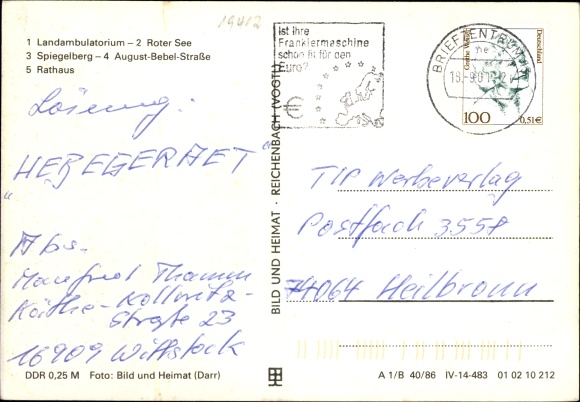 19412
1 Landambulatorium – 2 Roter See
3 Spiegelberg – 4 August-Bebel-Straße
5 Rathaus
Lösung:
„HEBEGERAET“
Abs.
Manfred Thamm
Käthe-Kollwitz-
Straße 23
16909 Wittstock
DDR 0,25 M Foto: Bild und Heimat (Darr)
BILD UND HEIMAT · REICHENBACH (VOGTL)
Ist Ihre
Frankiermaschine
schon fit für den
Euro?
€
BRIEFZENTRUM
Deutschland
100
0,51€
TIP Werbeverlag
Postfach 3558
74064 Heilbronn
A 1/B 40/86 IV-14-483 01 02 10 212